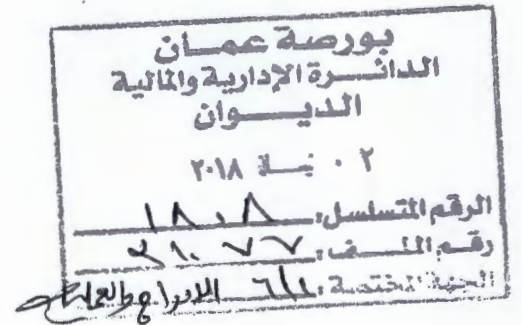 بورصة عمان
الدائرة الإدارية والمالية
الديوان
٠٢ نيسان ٢٠١٨
الرقم المتسلسل: ١٨٠٨
رقم الملف: ٢١٠٧٧
الجهة المختصة: ٦/١ الادراج والعمليات